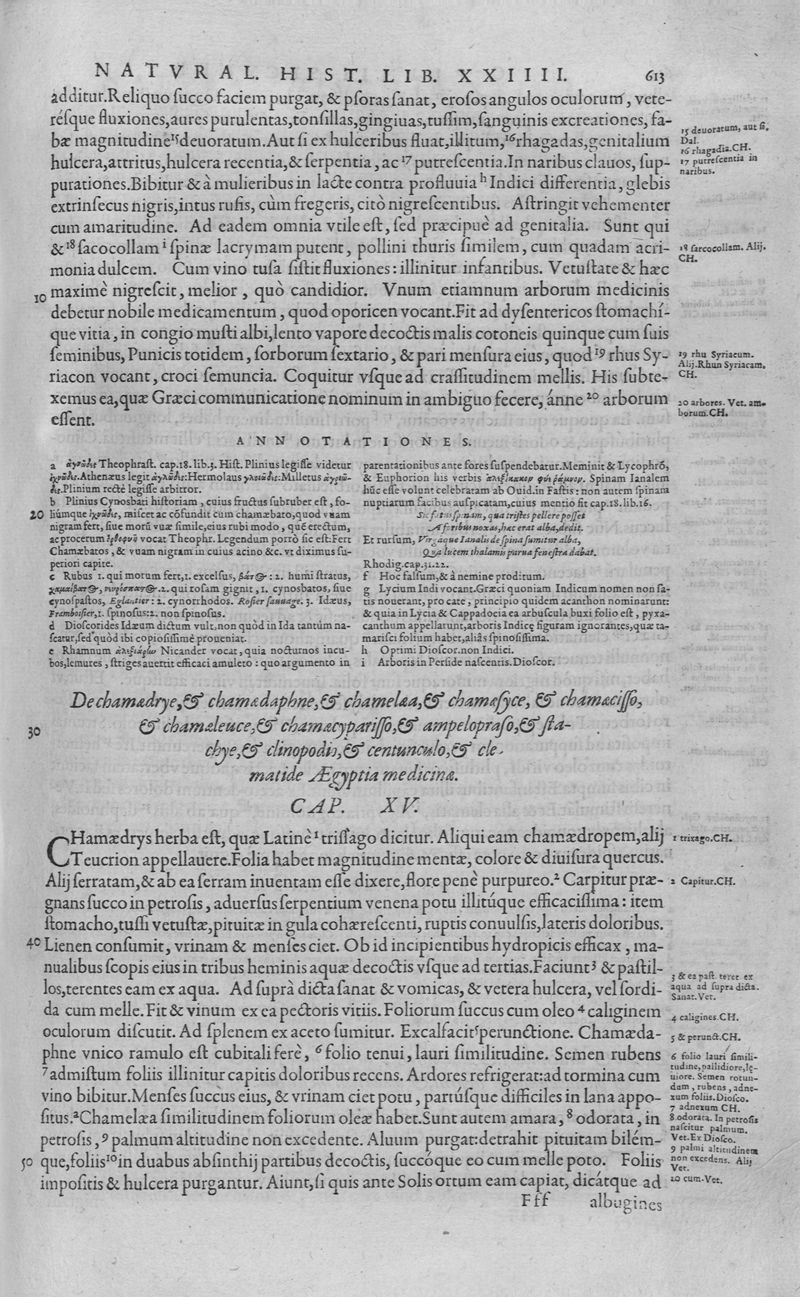 NATVRAL. HIST. LIB. XXIIII. 613
additur. Reliquo succo faciem purgat, & psoras sanat, erosos angulos oculorum, vete-
résque fluxiones, aures purulentas, tonsillas, gingiuas, tussim, sanguinis excreationes, fa-
bæ magnitudine ¹⁵deuoratum. Aut si ex hulceribus fluat, illitum, ¹⁶rhagadas, genitalium
hulcera, attritus, hulcera recentia, & serpentia, ac ¹⁷ putrescentia. In naribus clauos, sup-
purationes. Bibitur & à mulieribus in lacte contra profluuia ʰ Indici differentia, glebis
extrinsecus nigris, intus rufis, cùm fregeris, citò nigrescentibus. Astringit vehementer
cum amaritudine. Ad eadem omnia vtile est, sed præcipuè ad genitalia. Sunt qui
& ¹⁸ sacocollam ⁱ spinæ lacrymam putent, pollini thuris similem, cum quadam acri-
monia dulcem. Cum vino tusa sistit fluxiones: illinitur infantibus. Vetustate & hæc
10 maximè nigrescit, melior, quò candidior. Vnum etiamnum arborum medicinis
debetur nobile medicamentum, quod oporicen vocant. Fit ad dysentericos stomachí-
que vitia, in congio musti albi, lento vapore decoctis malis cotoneis quinque cum suis
seminibus, Punicis totidem, sorborum sextario, & pari mensura eius, quod ¹⁹ rhus Sy-
riacon vocant, croci semuncia. Coquitur vsque ad crassitudinem mellis. His subte-
xemus ea, quæ Græci communicatione nominum in ambiguo fecere, ánne ²⁰ arborum
essent.
15 deuoratum, aut si.
Dal.
16 rhagadia. CH.
17 putrescentia in
naribus.
18 sarcocollam. Alij.
CH.
19 rhu Syriacum.
Alij. Rhun Syriacam.
CH.
20 arbores. Vet. am-
borum. CH.
ANNOTATIONES.
a ἀγνῶδες Theophrast. cap. 18. lib. 3. Hist. Plinius legisse videtur
Plinium rectè legisse arbitror.
b Plinius Cynosbati historiam, cuius fructus subruber est, fo-
20 liúmque ἰχνῶδες, miscet ac cōfundit cum chamæbato, quod vuam
nigram fert, siue morū vuæ simile, eius rubi modo, quę erectum,
ac procerum vocat Theophr. Legendum porrò sic est: Fert
Chamæbatos, & vuam nigram in cuius acino &c. vt diximus su-
periori capite.
c Rubus 1. qui morum fert, 1. excelsus, βάτος: 2. humi stratus,
χαμαίβατος, 2. qui rosam gignit, 1. cynosbatos, siue
cynospastos, Eglantier: 2. cynorrhodos. Rosier sauuage. 3. Idæus,
Framboisier, 1. spinosus: 2. non spinosus.
d Dioscorides Idæum dictum vult, non quòd in Ida tantùm na-
scatur, sed quòd ibi copiosissimè proueniat.
e Rhamnum Nicander vocat, quia nocturnos incu-
bos, lemures, striges auertit efficaci amuleto: quo argumento in
parentationibus ante fores suspendebatur. Meminit & Lycophrō,
& Euphorion his verbis Spinam Ianalem
hūc esse volunt celebratam ab Ouid. in Fastis: non autem spinam
nuptiarum facibus auspicatam, cuius mentio fit cap. 18. lib. 16.
Sic fatus spinam, qua tristes pellere posset
A foribus noxas, hæc erat alba, dedit.
Et rursum, Virgaque Ianalis de spina sumitur alba,
Qua lucem thalamis parua fenestra dabat.
Rhodig. cap. 31. 22.
f Hoc falsum, & à nemine proditum.
g Lycium Indi vocant. Græci quoniam Indicum nomen non sa-
tis nouerant, pro cate, principio quidem acanthon nominarunt:
& quia in Lycia & Cappadocia ea arbuscula buxi folio est, pyxa-
canthum appellarunt, arboris Indicę figuram ignorantes, quæ ta-
marisci folium habet, aliàs spinosissima.
h Optimi Dioscor. non Indici.
i Arboris in Perside nascentis. Dioscor.
De chamædrye, & chamædaphne, & chamelæa, & chamæsyce, & chamæcisso,
30 & chamæleuce, & chamæcyparisso, & ampelopraso, & sta-
chye, & clinopodio, & centunculo, & cle-
matide Ægyptia medicinæ.
CAP. XV.
CHamædrys herba est, quæ Latinè ¹ trissago dicitur. Aliqui eam chamædropem, alij
Teucrion appellauere. Folia habet magnitudine mentæ, colore & diuisura quercus.
Alij serratam, & ab ea serram inuentam esse dixere, flore penè purpureo. ² Carpitur præ-
gnans succo in petrosis, aduersus serpentium venena potu illitúque efficacissima: item
stomacho, tussi vetustæ, pituitæ in gula cohærescenti, ruptis conuulsis, lateris doloribus.
40 Lienen consumit, vrinam & menses ciet. Ob id incipientibus hydropicis efficax, ma-
nualibus scopis eius in tribus heminis aquæ decoctis vsque ad tertias. Faciunt ³ & pastil-
los, terentes eam ex aqua. Ad suprà dicta sanat & vomicas, & vetera hulcera, vel sordi-
da cum melle. Fit & vinum ex ea pectoris vitiis. Foliorum succus cum oleo ⁴ caliginem
oculorum discutit. Ad splenem ex aceto sumitur. Excalfacit ⁵perunctione. Chamæda-
phne vnico ramulo est cubitali ferè, ⁶ folio tenui, lauri similitudine. Semen rubens
⁷ admistum foliis illinitur capitis doloribus recens. Ardores refrigerat: ad tormina cum
vino bibitur. Menses succus eius, & vrinam ciet potu, partúsque difficiles in lana appo-
situs. ªChamelæa similitudinem foliorum oleæ habet. Sunt autem amara, ⁸ odorata, in
petrosis, ⁹ palmum altitudine non excedente. Aluum purgat: detrahit pituitam bilém-
50 que, foliis ¹⁰ in duabus absinthij partibus decoctis, succóque eo cum melle poto. Foliis
impositis & hulcera purgantur. Aiunt, si quis ante Solis ortum eam capiat, dicátque ad
Fff albugines
1 trixago. CH.
2 Capitur. CH.
3 & ea past. teret ex
aqua ad supra dicta.
Sanat. Vet.
4 caligines. CH.
5 & perunct. CH.
6 folio lauri simili-
tudine, pallidiore, lę-
uiore. Semen rotun-
dum, rubens, adne-
xum foliis. Diosco.
7 adnexum CH.
8 odorata. In petrosis
nascitur palmum.
Vet. Ex Diosco.
9 palmi altitudinem
non excedens. Alij
Vet.
10 cum. Vet.